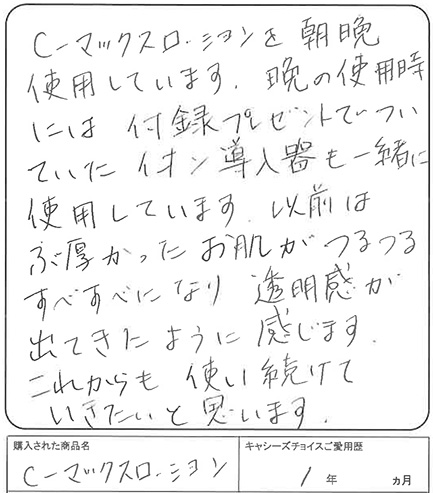 C-マックスローションを 朝晩
使用しています. 晩の使用時
には 付録プレゼントでつい
ていた イオン導入器も一緒に
使用しています. 以前は
ぶ厚かった お肌が つるつる
すべすべになり 透明感が
出てきたように 感じます.
これからも 使い続けて
いきたいと思います.
購入された商品名
C-マックスローション
キャシーズチョイスご愛用歴
1 年 ヵ月